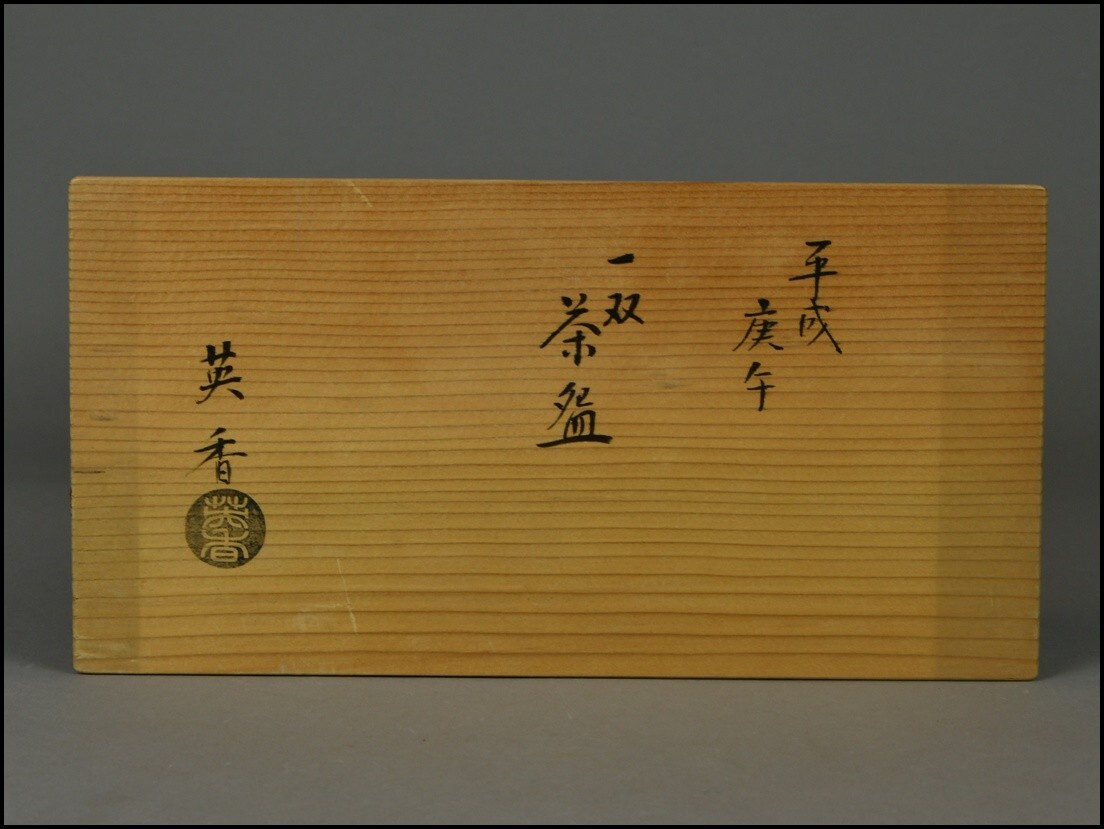 平成
庚午
一双
茶盌
英香
英香